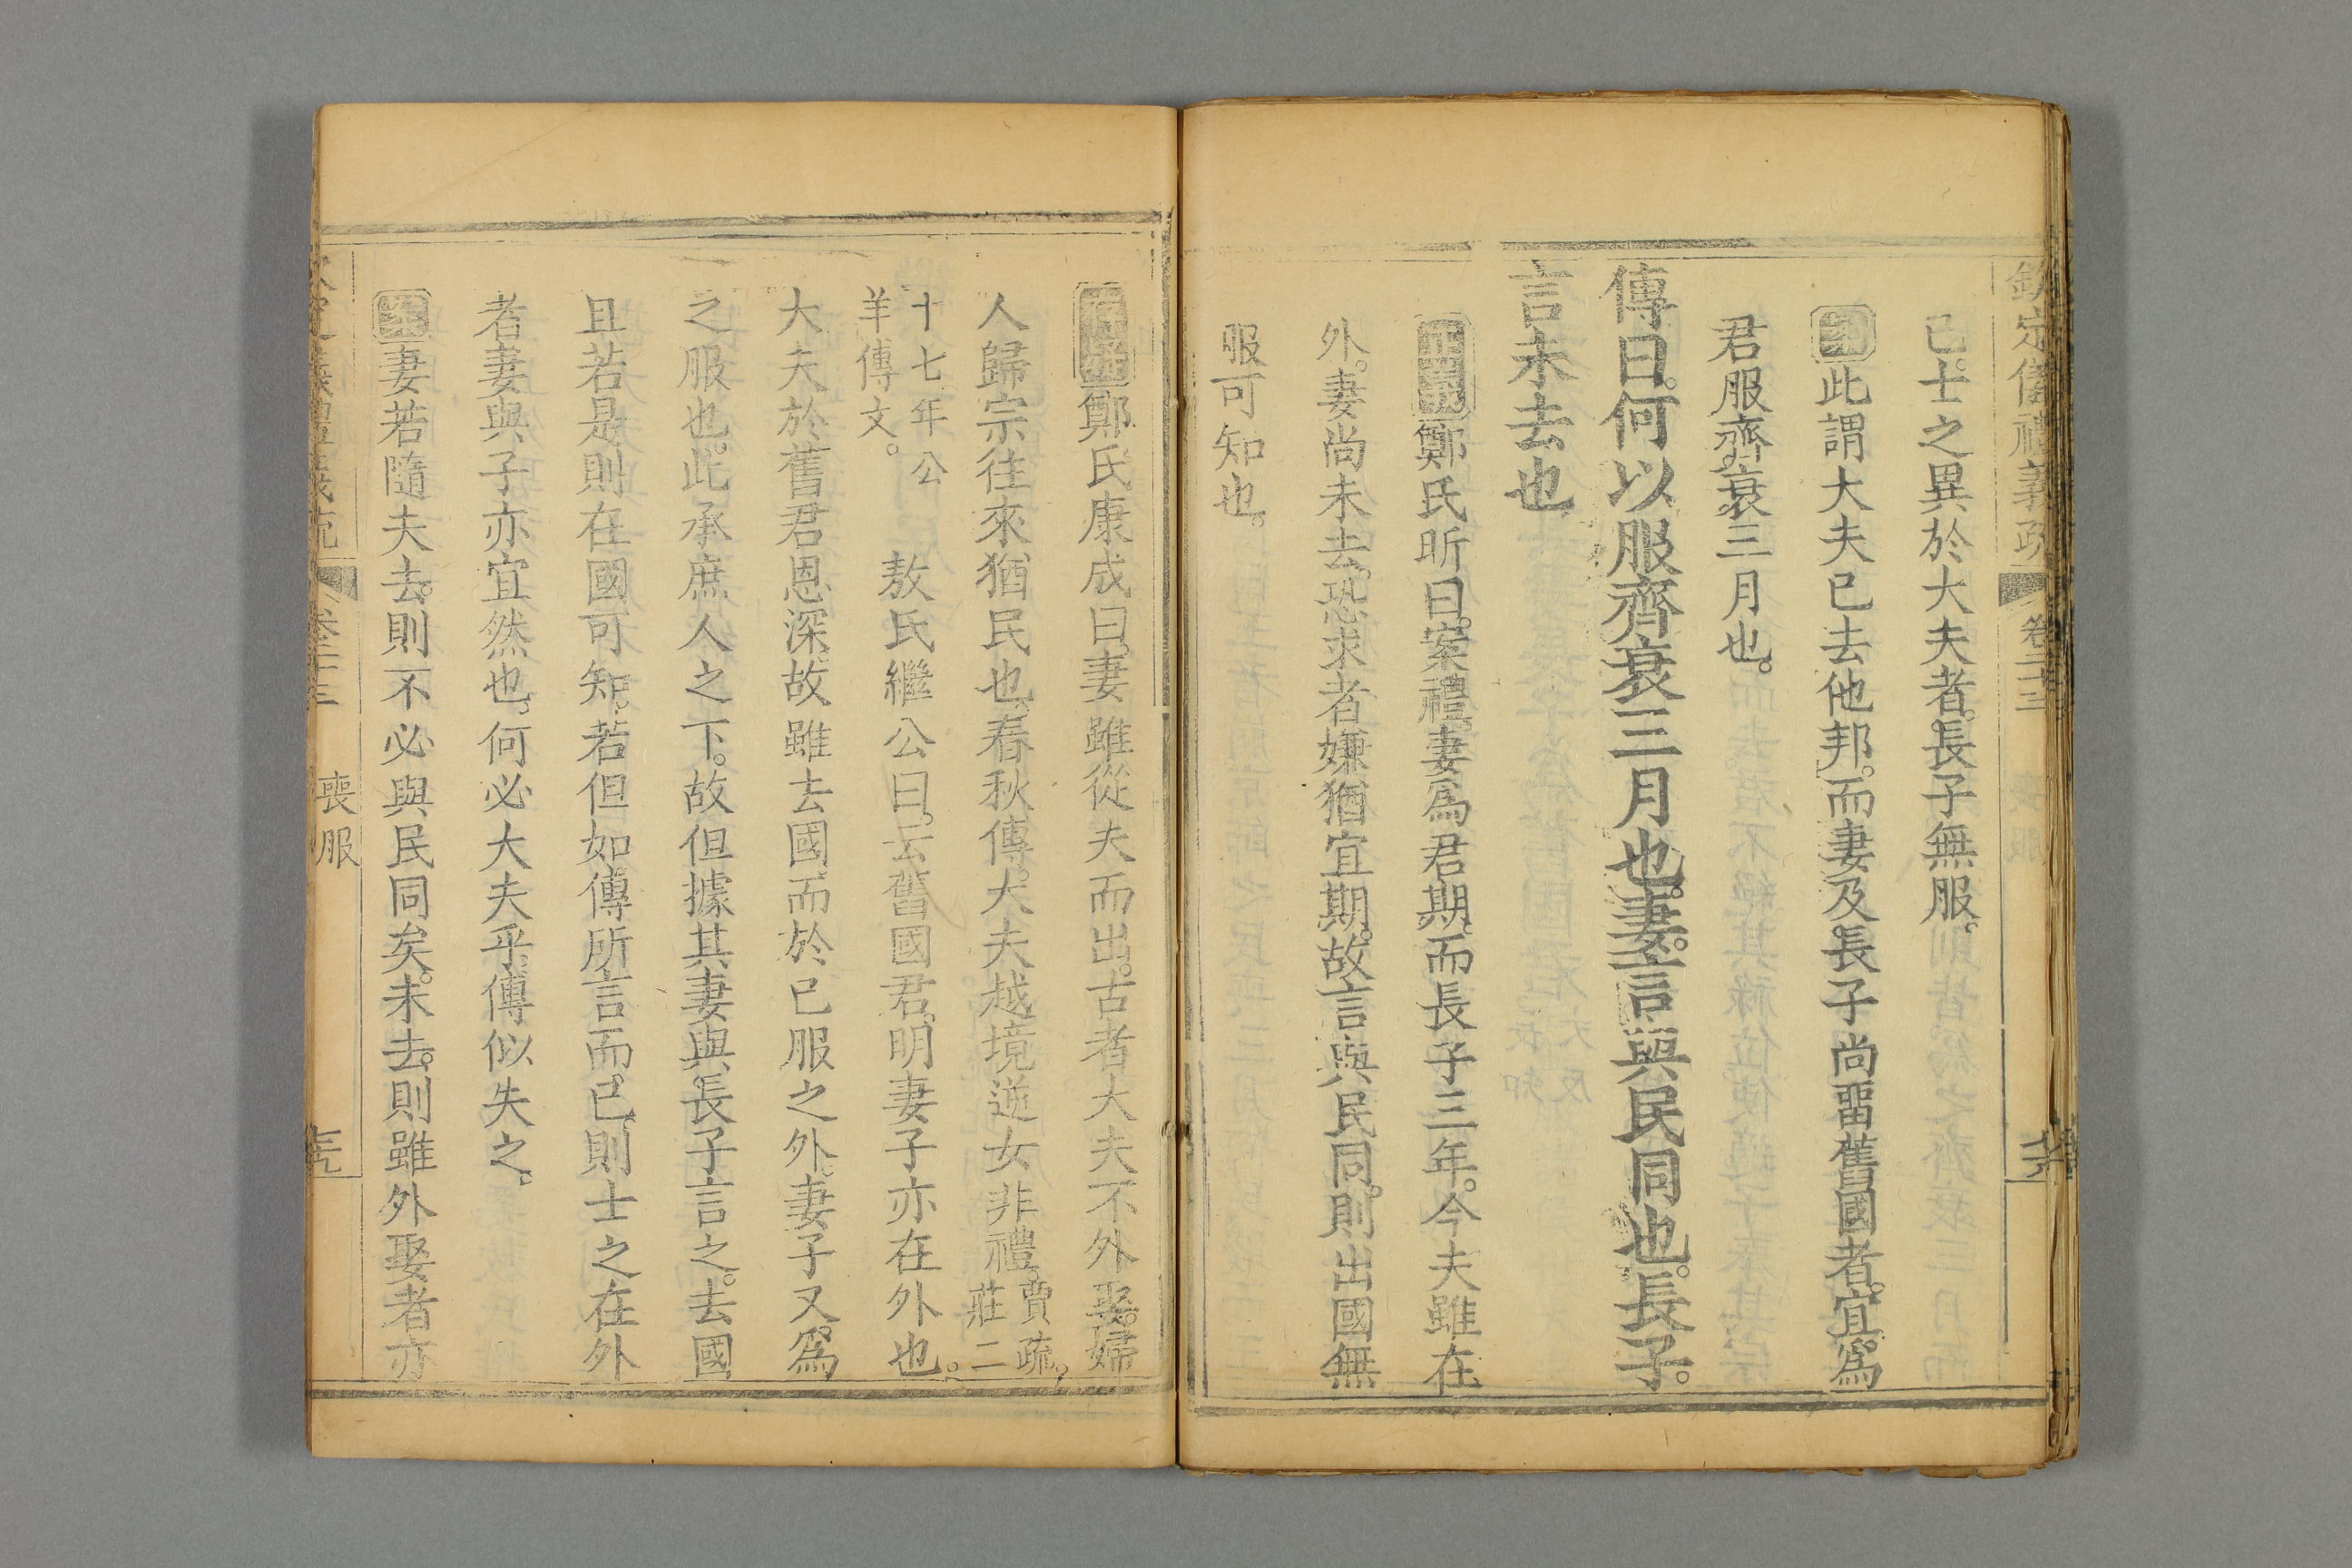 欽定儀禮義疏 卷二十三
已。士之異於大夫者。長子無服。
案此謂大夫已去他邦。而妻及長子尚畱舊國者。宜爲
君服齊衰三月也。
傳曰。何以服齊衰三月也。妻。言與民同也。長子。
言未去也
正義鄭氏昕曰。案禮。妻爲君期。而長子三年。今夫雖在
外。妻尚未去。恐求者嫌猶宜期。故言與民同。則出國無
服可知也。
鄭氏康成曰。妻雖從夫而出。古者大夫不外娶。婦
人歸宗往來猶民也。春秋傳。大夫越境逆女非禮。賈疏。莊二
十七年公羊傳文。 敖氏繼公曰。云舊國君。明妻子亦在外也。
大夫於舊君恩深。故雖去國。而於已服之外。妻子又爲
之服也。此承庶人之下。故但據其妻與長子言之。去國
且若是。則在國可知。若但如傳所言而已。則士之在外
者妻與子亦宜然也。何必大夫乎。傳似失之。
案妻若隨夫去。則不必與民同矣。未去。則雖外娶者亦
喪服